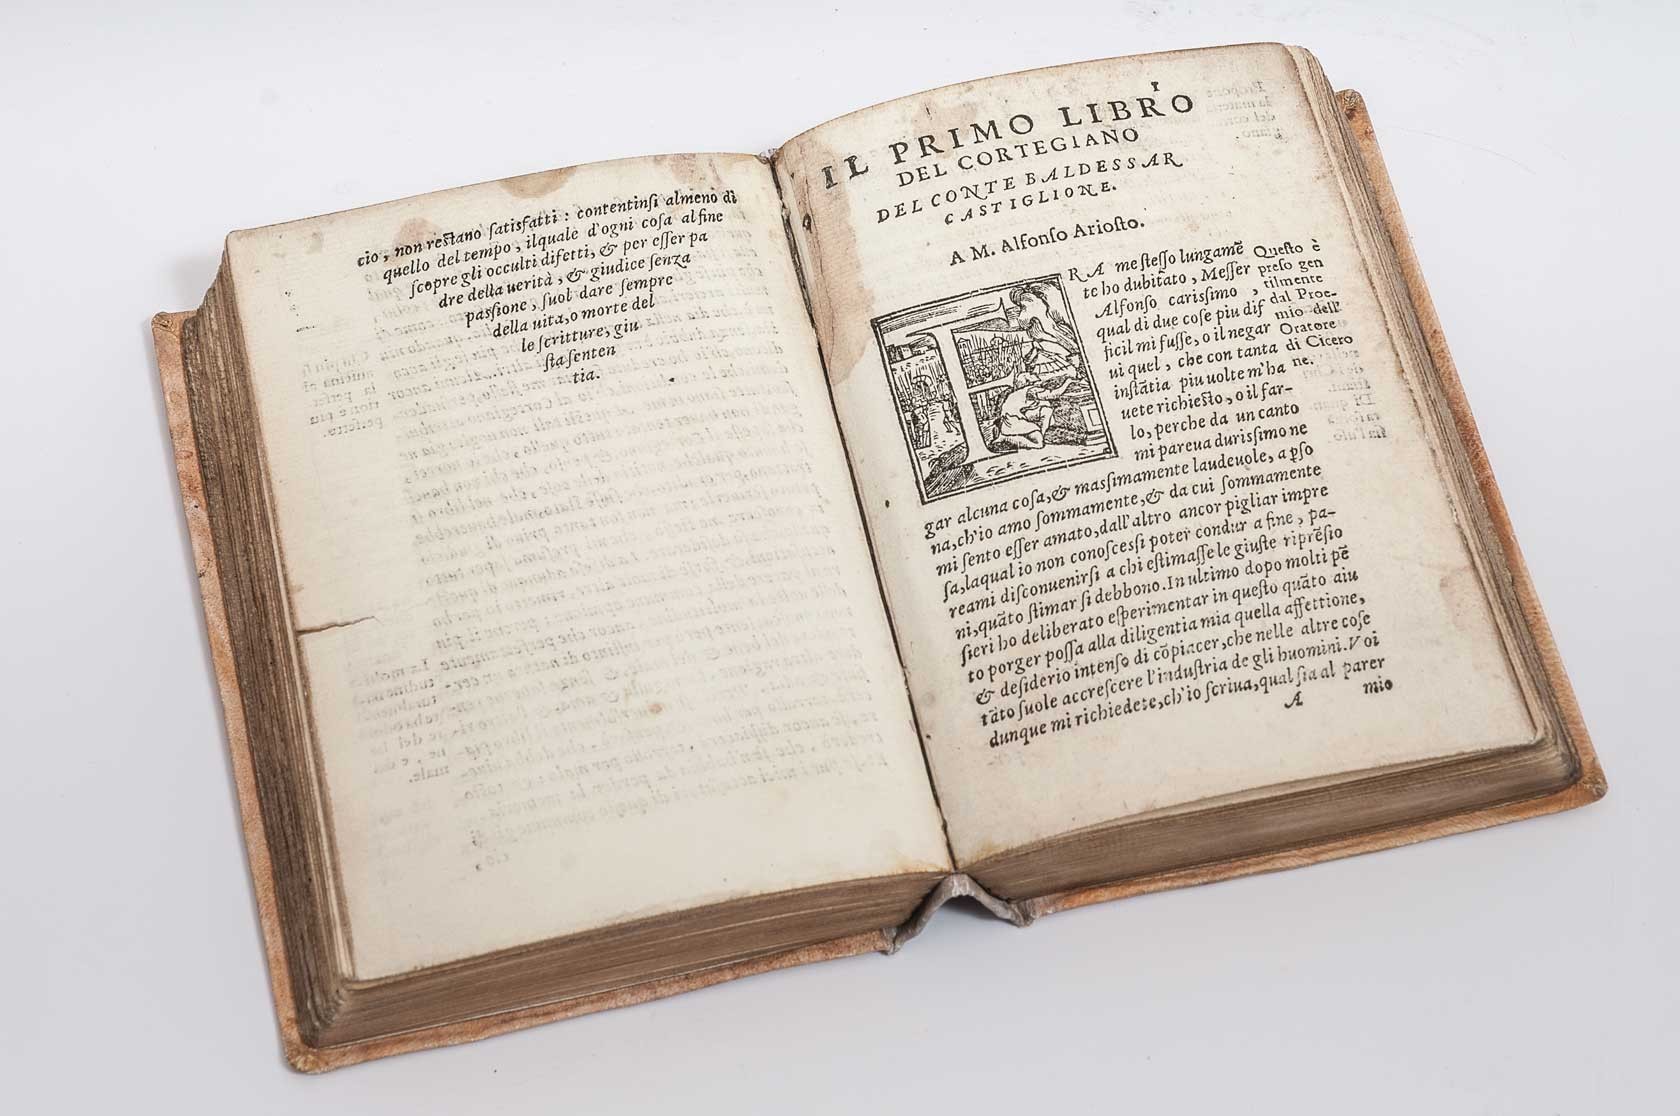 cio, non restano ſatisfatti: contentinſi almeno di
quello del tempo, ilquale d'ogni coſa alfine
ſcopre gli occulti difetti, & per eſſer pa
dre della uerità, & giudice ſenza
paſſione, ſuol dare ſempre
della uita, o morte del
le ſcritture, giu
ſta ſenten
tia.
1
IL PRIMO LIBRO
DEL CORTEGIANO
DEL CONTE BALDESSAR
CASTIGLIONE.
A M. Alfonſo Arioſto.
F
RA me ſteſſo lungamẽ
te ho dubitato, Meſſer
Alfonſo cariſsimo,
qual di due coſe piu dif
ficil mi fuſſe, o il negar
ui quel, che con tanta
inſtãtia piu uolte m'ha
uete richieſto, o il far-
lo, perche da un canto
mi pareua duriſsimo ne
gar alcuna coſa, & maſsimamente laudeuole, a ꝑſo
na, ch'io amo ſommamente, & da cui ſommamente
mi ſento eſſer amato, dall'altro ancor pigliar impre
ſa, laqual io non conoſceſsi poter condur a fine, pa-
reami diſconuenirſi a chi eſtimaſſe le giuſte ripreſio
ni, quãto ſtimar ſi debbono. In ultimo dopo molti pẽ
ſieri ho deliberato eſperimentar in queſto quãto aiu
to porger poſſa alla diligentia mia quella affettione,
& deſiderio intenſo di cõpiacer, che nelle altre coſe
tãto ſuole accreſcere l'induſtria de gli huomini. Voi
dunque mi richiedete, ch'io ſcriua, qual ſia al parer
A
mio
Queſto è
preſo gen
tilmente
dal Proe-
mio dell'
Oratore
di Cicero
ne.